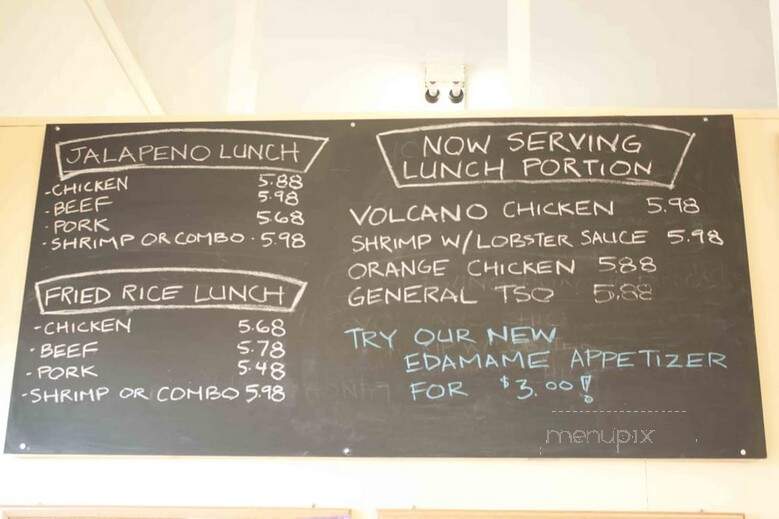 JALAPENO LUNCH
-CHICKEN 5.88
-BEEF 5.98
-PORK 5.68
-SHRIMP OR COMBO · 5.98
FRIED RICE LUNCH
-CHICKEN 5.68
-BEEF 5.78
-PORK 5.48
-SHRIMP OR COMBO 5.98
NOW SERVING
LUNCH PORTION
VOLCANO CHICKEN 5.98
SHRIMP W/LOBSTER SAUCE 5.98
ORANGE CHICKEN 588
GENERAL TSO 5.88
TRY OUR NEW
EDAMAME APPETIZER
FOR $3.00!
menupix